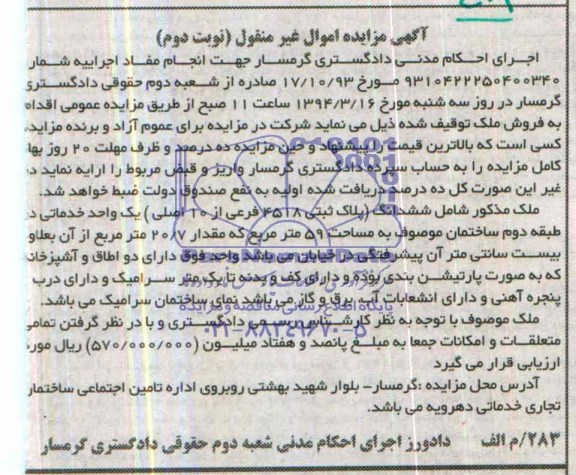 آگهی مزایده اموال غیر منقول (نوبت دوم)
اجرای احکام مدنی دادگستری گرمسار جهت انجام مفاد اجراییه شمار
۹۳۱۰۴۲۲۲۵۰۴۰۰۳۴۰ مورخ ۱۷/۱۰/۹۳ صادره از شعبه دوم حقوقی دادگستری
گرمسار در روز سه شنبه مورخ ۱۳۹۴/۳/۱۶ ساعت ۱۱ صبح از طریق مزایده عمومی اقدام
به فروش ملک توقیف شده ذیل می نماید شرکت در مزایده برای عموم آزاد و برنده مزایده
کسی است که بالاترین قیمت را پیشنهاد و حین مزایده ده درصد و ظرف مهلت ۲۰ روز بها
کامل مزایده را به حساب سپرده دادگستری گرمسار واریز و قبض مربوط را ارایه نماید در
غیر این صورت کل ده درصد دریافت شده اولیه به نفع صندوق دولت ضبط خواهد شد.
ملک مذکور شامل ششدانگ (پلاک ثبتی ۴۵۱۸ فرعی از ۱۰ اصلی ) یک واحد خدماتی در
طبقه دوم ساختمان موصوف به مساحت ۵۹ متر مربع که مقدار ۲۰/۷ متر مربع از آن بعلاو
بیست سانتی متر آن پیشرفتگی در خیابان می باشد واحد فوق دارای دو اطاق و آشپزخانه
که به صورت پارتیشن بندی بوده و دارای کف و بدنه تا یک متر سرامیک و دارای درب
پنجره آهنی و دارای انشعابات آب، برق و گاز می باشد نمای ساختمان سرامیک می باشد.
ملک موصوف با توجه به نظر کارشناس رسمی دادگستری و با در نظر گرفتن تمامی
متعلقات و امکانات جمعا به مبلغ پانصد و هفتاد میلیون (۵۷۰/۰۰۰/۰۰۰) ریال مورد
ارزیابی قرار می گیرد
آدرس محل مزایده :گرمسار– بلوار شهید بهشتی روبروی اداره تامین اجتماعی ساختمان
تجاری خدماتی دهرویه می باشد.
۲۸۳/م الف دادورز اجرای احکام مدنی شعبه دوم حقوقی دادگستری گرمسار
پایگاه اطلاع رسانی مناقصه و مزایده
۰۲۱-۸۸۳۴۹۶۷۰-۵